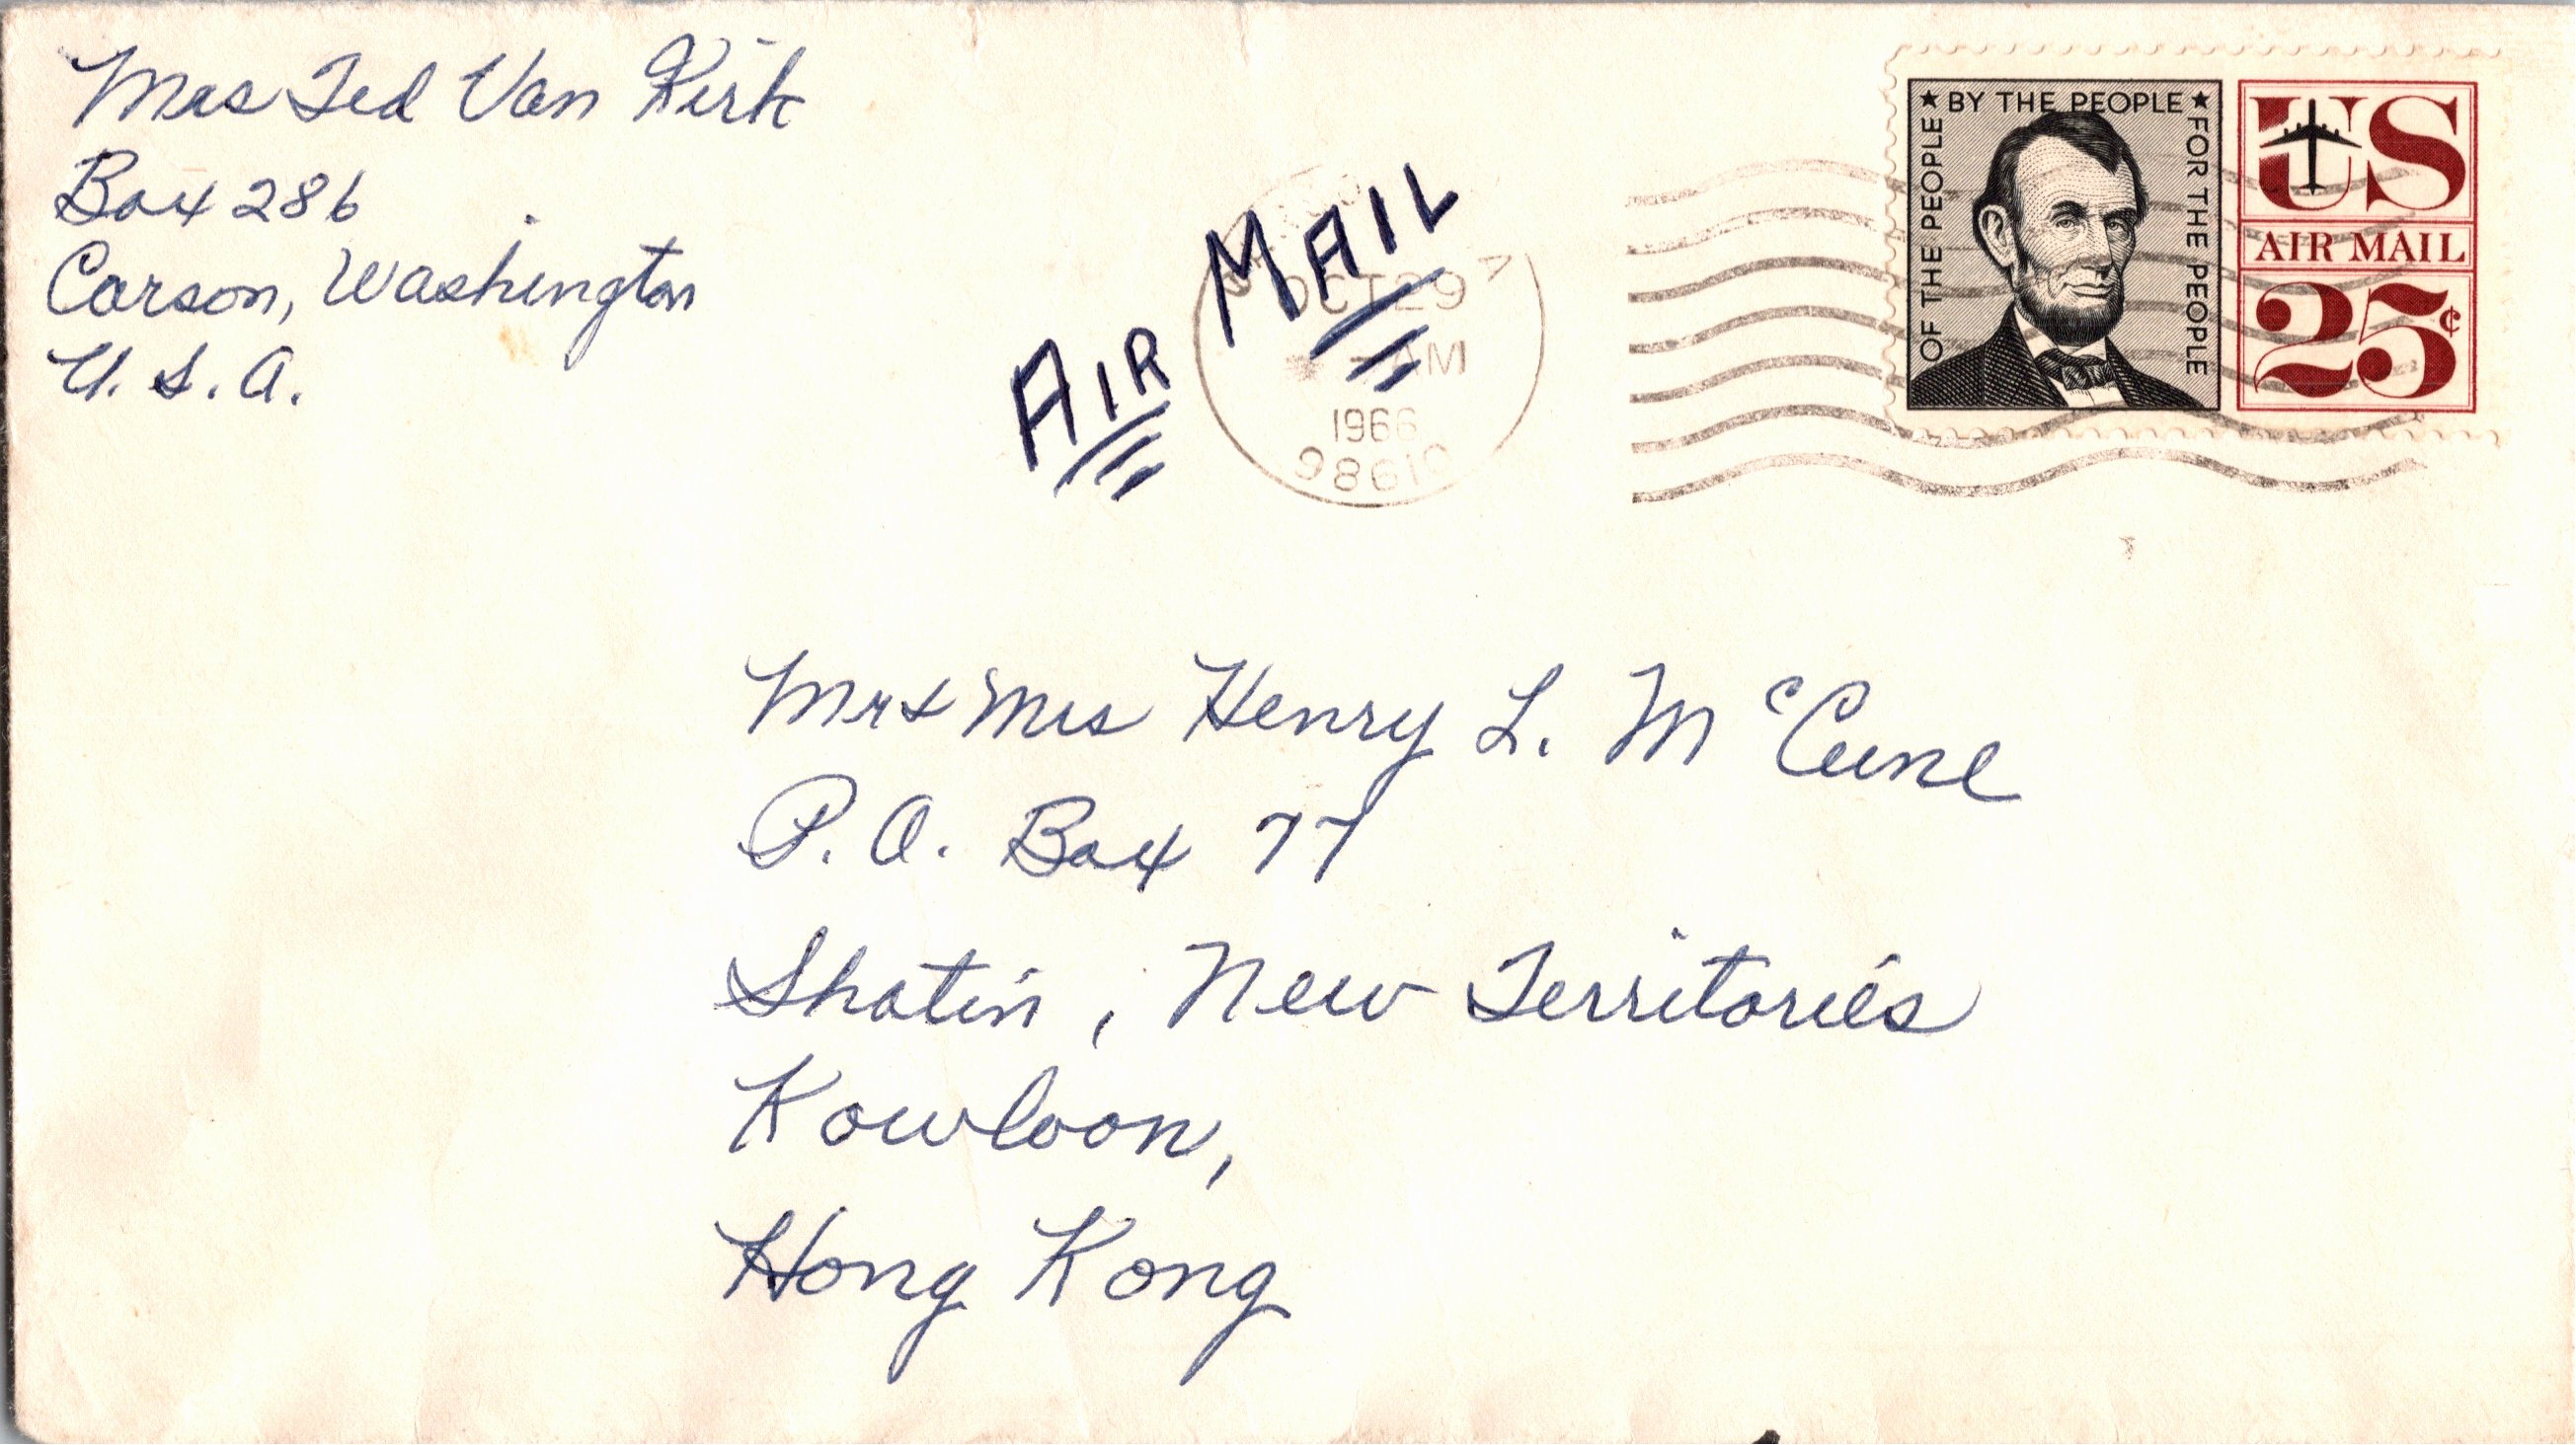 Mrs Ted Van Kirk
Box 286
Carson, Washington
U. S. A.
AIR MAIL
OCT 29
AM
1966
98610
★ BY THE PEOPLE ★
OF THE PEOPLE
FOR THE PEOPLE
US
AIR MAIL
25¢
Mr & Mrs Henry L. McCune
P. O. Box 77
Shatin, New Territories
Kowloon,
Hong Kong